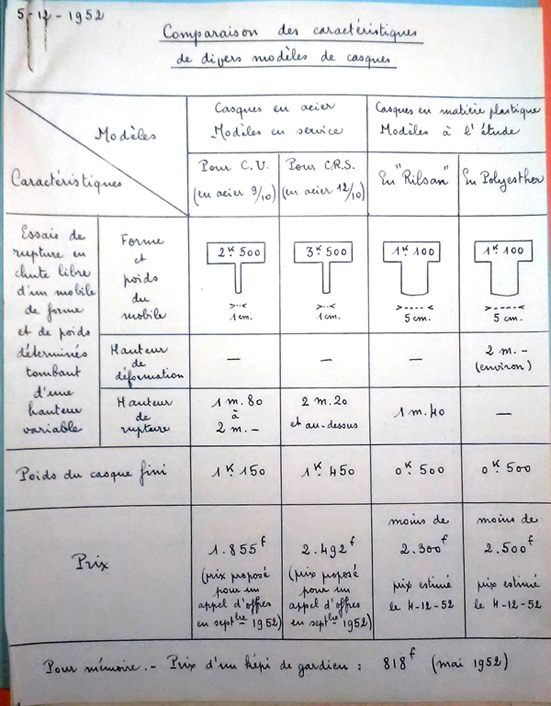 5-12-1952
Comparaison des caractéristiques
de divers modèles de casques
Modèles
Caractéristiques
Casques en acier
Modèles en service
Casques en matière plastique
Modèles à l'étude
Pour C.U.
(en acier 9/10)
Pour C.R.S.
(en acier 12/10)
En "Rilsan"
En Polyesther
Essais de
rupture en
chute libre
d'un mobile
de forme
et de poids
déterminés
tombant
d'une
hauteur
variable
Forme
et
poids
du
mobile
2K.500
1 cm.
3K.500
1 cm.
1K.100
5 cm.
1K.100
5 cm.
Hauteur
de
déformation
—
—
—
2 m.-
(environ)
Hauteur
de
rupture
1 m.80
à
2 m.-
2 m.20
et au-dessus
1 m.40
—
Poids du casque fini
1K.150
1K.450
0K.500
0K.500
Prix
1.855f
(prix proposé
pour un
appel d'offres
en septbre 1952)
2.492f
(prix proposé
pour un
appel d'offres
en septbre 1952)
moins de
2.300f
prix estimé
le 4-12-52
moins de
2.500f
prix estimé
le 4-12-52
Pour mémoire.- Prix d'un képi de gardien : 818f (mai 1952)